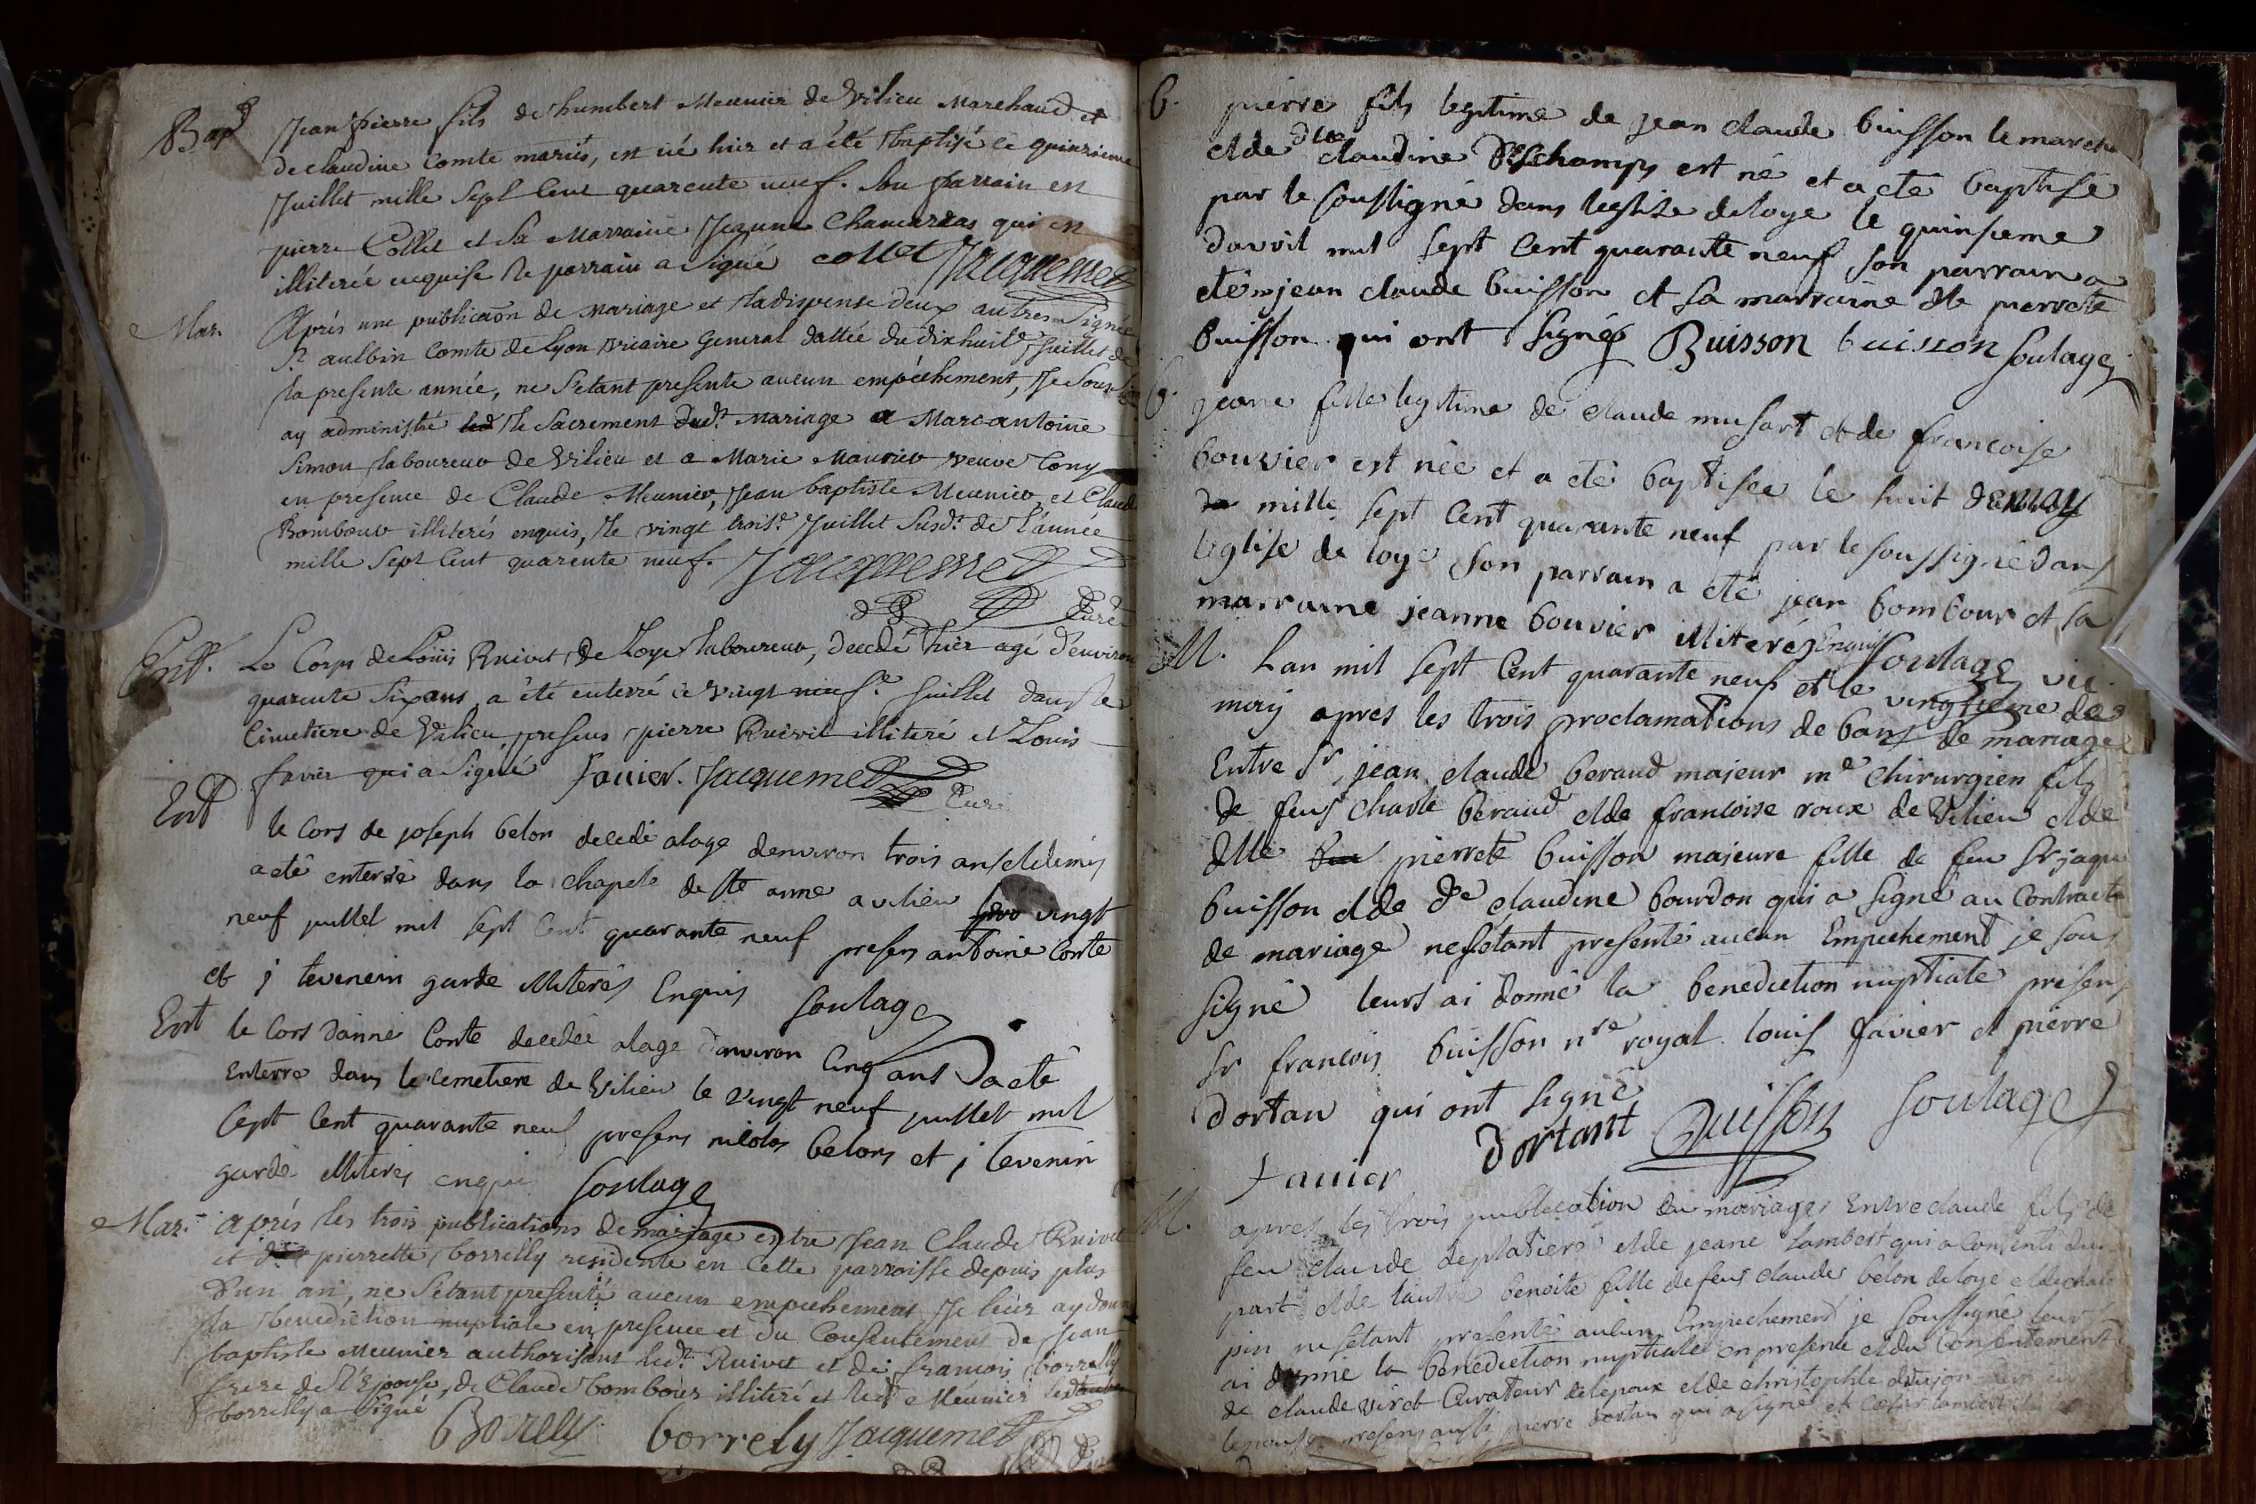 Bap
Jean pierre fils de humbert Meunier de Vilieu Marchand et
de claudine Comte mariés, est né hier et a été baptisé ce quinzieme
Juillet mille sept cent quarente neuf. Son parrain est
pierre Collet et Sa Marraine Jeanne qui est
illiterée enquise le parrain a Signé collet Jacquemet
Mar. Après une publication de Mariage et la dispense deux autres Signée
St aulbin Comte de Lyon vicaire General dattée du dix huit Juillet de
la presente année, ne s'etant presenté aucun empêchement, Je Sous
ay administré le Sacrement dud. Mariage a Marc antoine
Simon laboureur de Vilieu et a Marie Maurier veuve
en presence de Claude Meunier, Jean baptiste Meunier, et Claude
Bombour illiterés enquis, le vingt trois.e Juillet Susd. de l'année
mille Sept Cent quarente neuf. Jacquemet
Curé
Ent. Le Corps de Loüis Ruivet de Loye laboureur, decedé hier agé d'environ
quarente Six ans a été enterré ce vingt neuf.e Juillet dans le
Cimetiere de Vilieu, presens pierre Ruivet illiteré et Louis
favier qui a Signé favier. Jacquemet
Curé
Ent
le Cors de joseph belon decedé a lage denviron trois ans et demis
a eté enterré dans la chapele de Ste anne a vilieu vingt
neuf juillet mil sept Cent quarante neuf presens antoine Conte
et j tevenein garde illiterés Enquis Soulage
Ent le Cors danne Conte decedée a lage denviron Cinq ans a eté
Enterré dans le cemetiere de Vilieu le vingt neuf juillet mil
Sept Cent quarante neuf presens nicolas belons et j tevenin
garde illiterés enquis Soulage
Mar. après les trois publications de mariage entre Jean Claude Ruivet
et pierrette borrelly residente en Cette parroisse depuis plus
d'un an, ne s'etant presenté aucun empechement Je leur ay donné
la benediction nuptiale en presence et du Consentement de Jean
baptiste Meunier authorisant led. Ruivet et de francois borrelly
frere de l'Epouse, de Claude bombour illiteré et led. Meunier
borrelly a Signé
Borelly borrely Jacquemet
b. pierre fils legitime de jean claude buisson le
et de dlle claudine Deschamps est né et a eté baptisé
par le soussigné dans leglise de loye le quinsieme
davril mil sept Cent quarante neuf son parrain a
eté jean claude buisson et sa marraine dlle pierrete
buisson qui ont Signés Buisson buisson Soulage
b. jeane fille legitime de claude musart et de francoise
bouvier est née et a eté baptisée le huit de may
mille sept Cent quarante neuf par le soussigné dans
leglise de loye Son parrain a eté jean bombour et sa
marraine jeanne bouvier illiterés Enquis Soulage vic.
M. Lan mil sept Cent quarante neuf et le vingtieme de
may apres les trois proclamations de bans de mariage
Entre Sr jean claude beraud majeur me chirurgien fils
de feus charle beraud et de francoise roux de Vilieu et de
dlle pierrete buisson majeure fille de feu Sr jaque
buisson et de de claudine bourdon qui a signé au Contracte
de mariage ne sétant presenté aucun Empechement je sous
signé leurs ai donné la benediction nuptiale presens
Sr francois buisson nre royal louis favier et pierre
dortan qui ont signé
favier dortant Buisson Soulage
M. apres les trois publication du mariage Entre claude fils de
feu claude deplatiere et de jeane lambert qui a Consenti
part et de lautre benoite fille de feus claude belon de loye et de
pin ne sétant presenté aucun Empechement je soussigné leurs
ai donné la benediction nuptiale en presence et du Consentement
de claude viret Curateur de lepoux et de christophle
lepouse presens aussi pierre dortan qui a signé et lambert